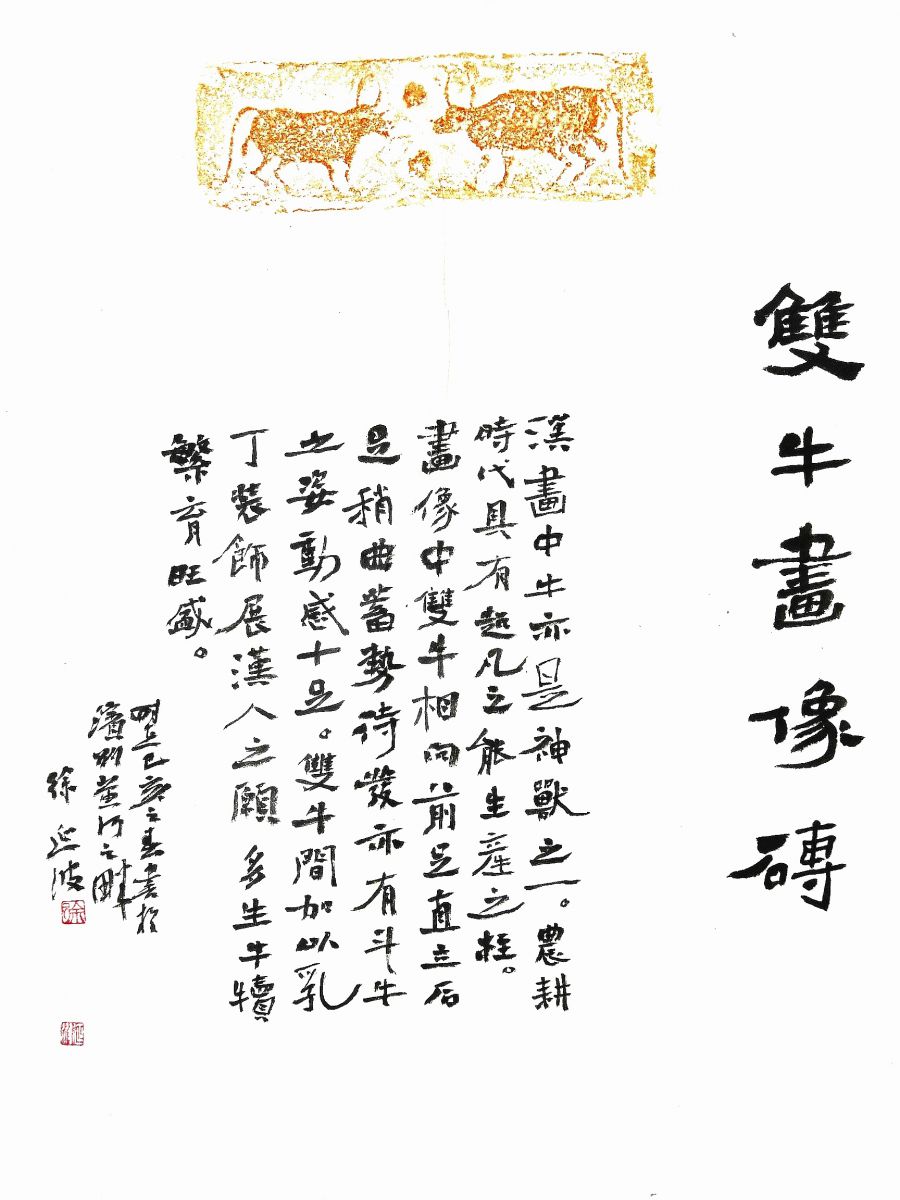 雙牛畫像磚
漢畫中牛亦是神獸之一。農耕
時代具有超凡之能生産之柱。
畫像中雙牛相向前足直立后
足稍曲蓄勢待發亦有斗牛
之姿動感十足。雙牛間加以乳
丁裝飾展漢人之願多生牛犢
繁育旺盛。
時在己亥之春書於
濱州黃河之畔
徐延波